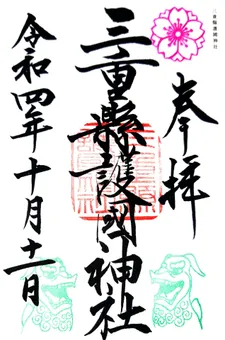 三重縣護國神社
奉拝
三重縣護國神社
令和四年十月十一日